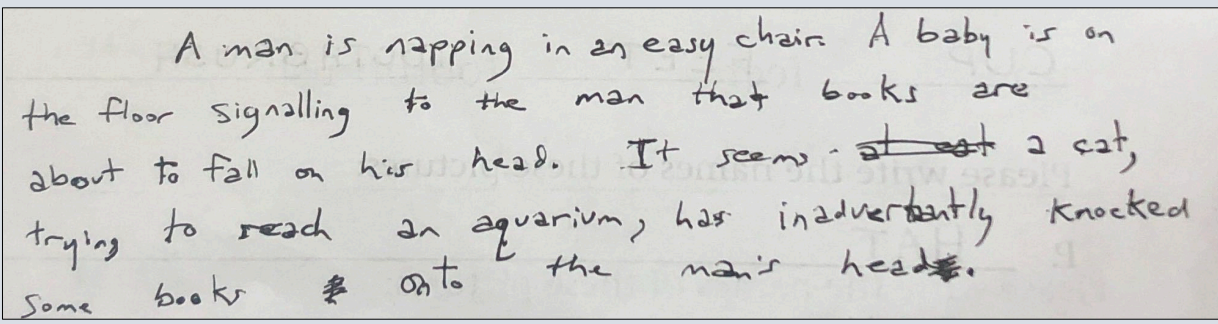 A man is napping in an easy chair. A baby is on
the floor signalling to the man that books are
about to fall on his head. It seems a cat,
trying to reach an aquarium, has inadvertantly knocked
some books onto the man's head.